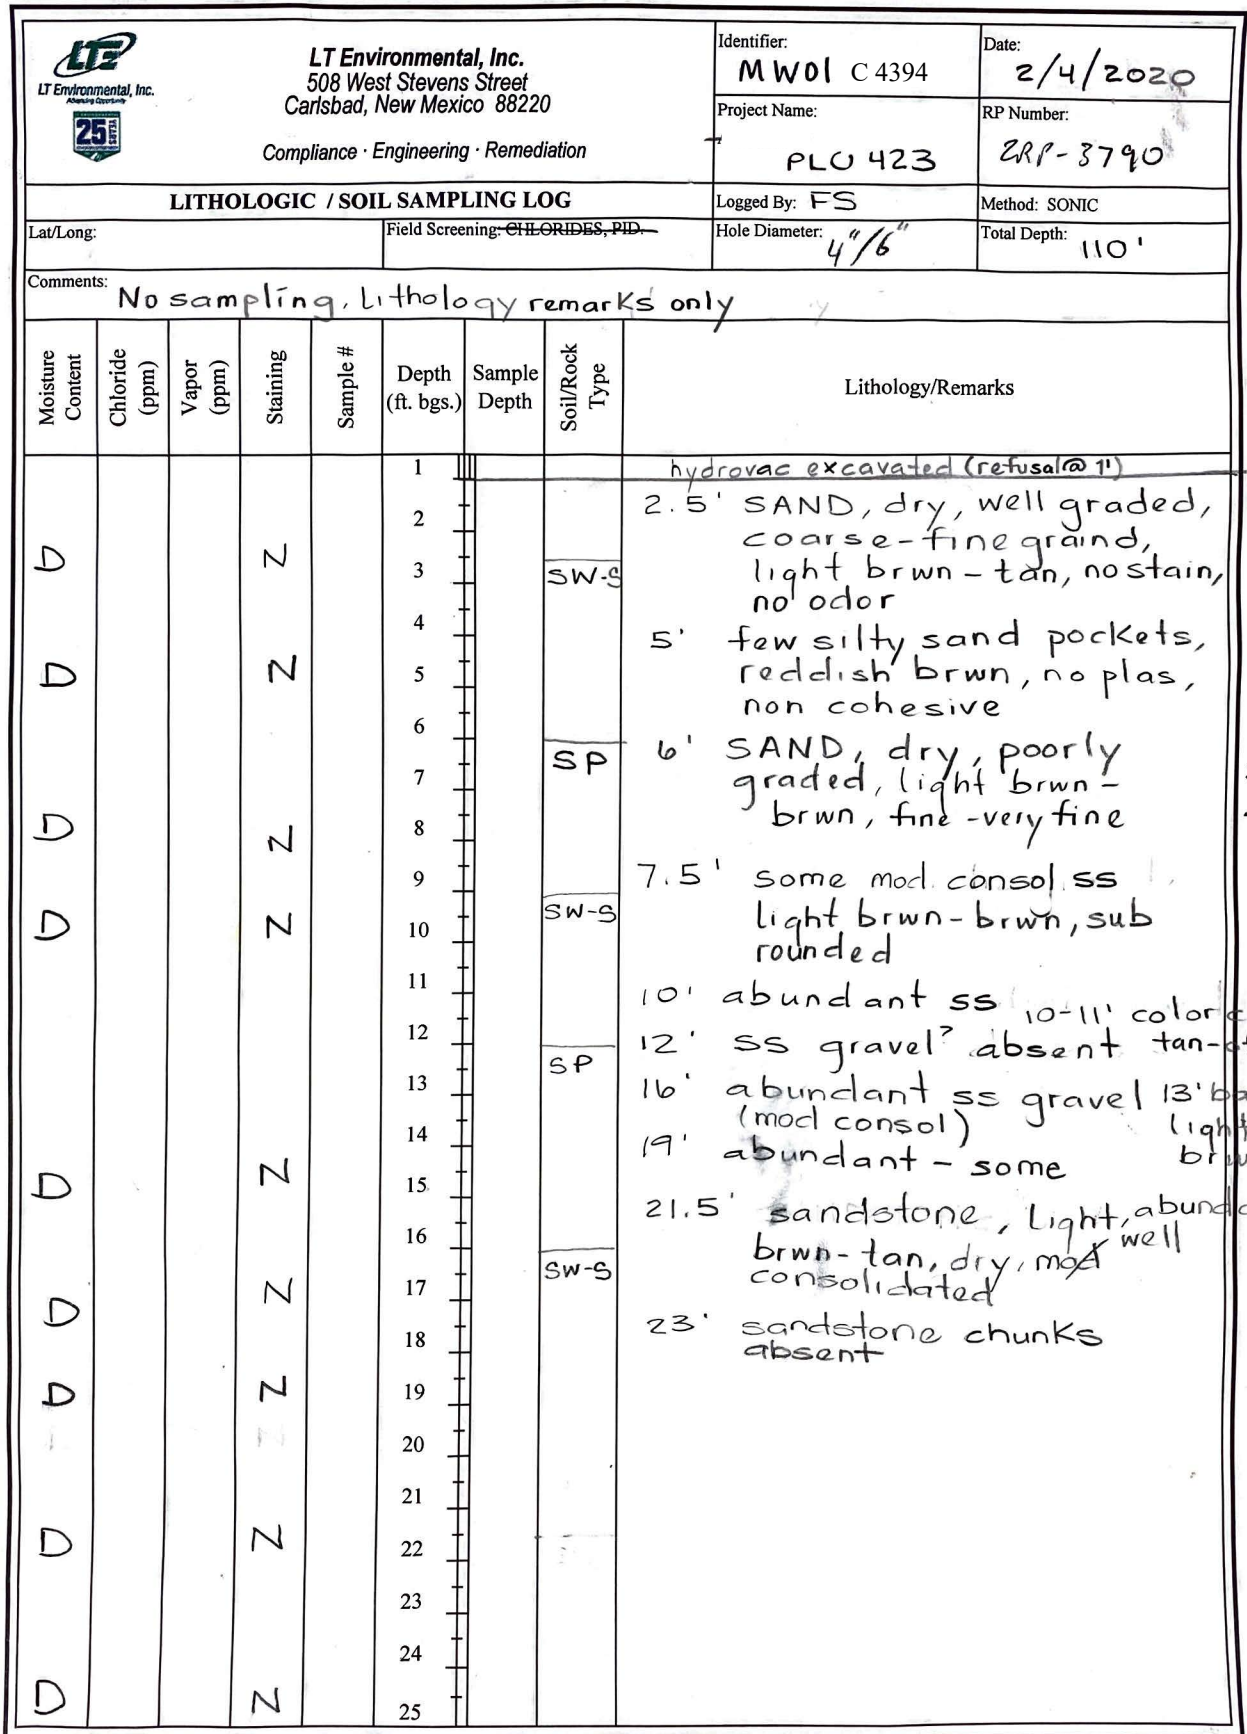 LTE
LT Environmental, Inc.
Advancing Opportunity
25 YEARS
LT Environmental, Inc.
508 West Stevens Street
Carlsbad, New Mexico 88220
Compliance · Engineering · Remediation
Identifier:
MW01 C 4394
Date:
2/4/2020
Project Name:
PLU 423
RP Number:
2RP-3790
LITHOLOGIC / SOIL SAMPLING LOG
Logged By: FS
Method: SONIC
Lat/Long:
Field Screening: CHLORIDES, PID.
Hole Diameter: 4"/6"
Total Depth: 110'
Comments: No sampling, Lithology remarks only
Moisture Content
Chloride (ppm)
Vapor (ppm)
Staining
Sample #
Depth (ft. bgs.)
Sample Depth
Soil/Rock Type
Lithology/Remarks
1 hydrovac excavated (refusal@ 1')
2.5' SAND, dry, well graded,
2
coarse-fine graind,
D N 3 SW-S light brwn - tan, no stain,
no odor
4
5' few silty sand pockets,
D N 5 reddish brwn, no plas,
non cohesive
6
SP 6' SAND, dry, poorly
7 graded, light brwn -
D N 8 brwn, fine -very fine
9 7.5' some mod. consol ss
D N 10 SW-S light brwn-brwn, sub
rounded
11
10' abundant ss 10-11' color
12 12' ss gravel? absent tan-
SP
13 16' abundant ss gravel 13'
14 (mod consol) light
19' abundant - some
D N 15
21.5' sandstone, Light,
16 brwn-tan, dry, mod well
D N 17 SW-S consolidated
18 23' sandstone chunks
absent
D N 19
20
21
D N 22
23
24
D N 25